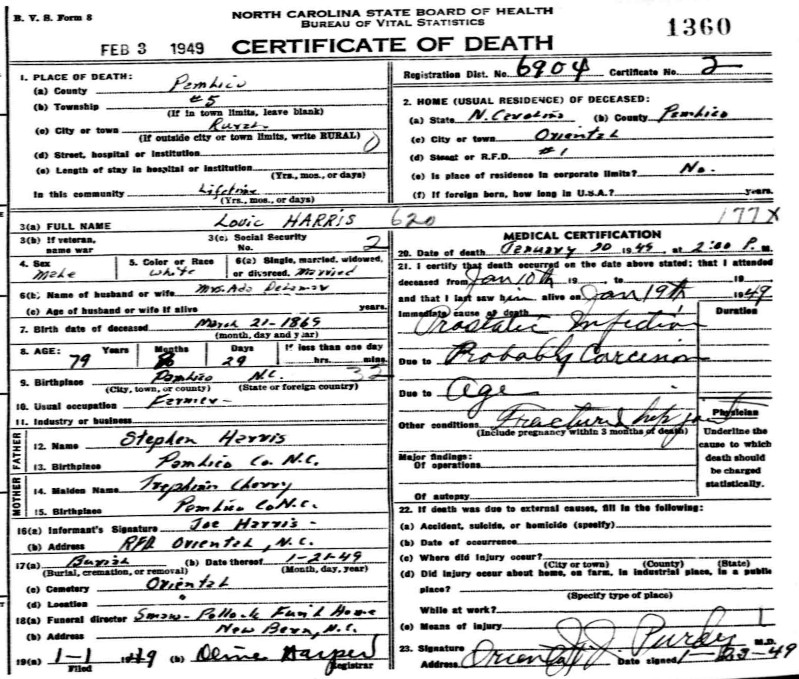 B. V. S. Form 8
NORTH CAROLINA STATE BOARD OF HEALTH
BUREAU OF VITAL STATISTICS
1360
FEB 3 1949
CERTIFICATE OF DEATH
Registration Dist. No. 6904 Certificate No. 2
1. PLACE OF DEATH:
(a) County Pamlico
(b) Township #5
(If in town limits, leave blank)
(c) City or town Rural
(If outside city or town limits, write RURAL)
(d) Street, hospital or institution
(e) Length of stay in hospital or institution
(Yrs., mos., or days)
In this community Lifetime
(Yrs., mos., or days)
2. HOME (USUAL RESIDENCE) OF DECEASED:
(a) State N. Carolina (b) County Pamlico
(c) City or town Oriental
(d) Street or R.F.D. #1
(e) Is place of residence in corporate limits? No.
(f) If foreign born, how long in U.S.A.? years.
3(a) FULL NAME Louic HARRIS 620 177X
3(b) If veteran, name war
3(c) Social Security No. 2
4. Sex Male
5. Color or Race White
6(a) Single, married, widowed, or divorced. Married
6(b) Name of husband or wife Mrs. Ada Delamar
(c) Age of husband or wife if alive years.
7. Birth date of deceased March 21-1869
(month, day and year)
8. AGE: 79 Years Months 29 Days If less than one day hrs. mins.
32
9. Birthplace Pamlico N.C.
(City, town, or county) (State or foreign country)
10. Usual occupation Farmer-
11. Industry or business
FATHER
12. Name Stephen Harris
13. Birthplace Pamlico Co. N.C.
MOTHER
14. Maiden Name Cherry
15. Birthplace Pamlico Co N.C.
16(a) Informant's Signature Joe Harris-
(b) Address RFD Oriental, N.C.
17(a) Burial (b) Date thereof 1-21-49
(Burial, cremation, or removal) (Month, day, year)
(c) Cemetery Oriental
(d) Location "
18(a) Funeral director Smaw-Pollock Funl Home
(b) Address New Bern, N.C.
19(a) 1-1 1949 (b) Olive Harper
Filed Registrar
MEDICAL CERTIFICATION
20. Date of death January 20 1949, at 2:00 P.M.
21. I certify that death occurred on the date above stated; that I attended
deceased from Jan 10th 19 , to 19
and that I last saw him alive on Jan 19th 1949
Immediate cause of death Duration
Prostatic Infection
Due to Probably Carcinion
Due to Age
Other conditions Fractured hip joint
(Include pregnancy within 3 months of death)
Major findings:
Of operations
Of autopsy
Physician
Underline the cause to which death should be charged statistically.
22. If death was due to external causes, fill in the following:
(a) Accident, suicide, or homicide (specify)
(b) Date of occurrence
(c) Where did injury occur?
(City or town) (County) (State)
(d) Did injury occur about home, on farm, in industrial place, in a public
place?
(Specify type of place)
While at work?
(e) Means of injury
23. Signature J. J. Purdy M.D.
Address Oriental Date signed 1-23-49